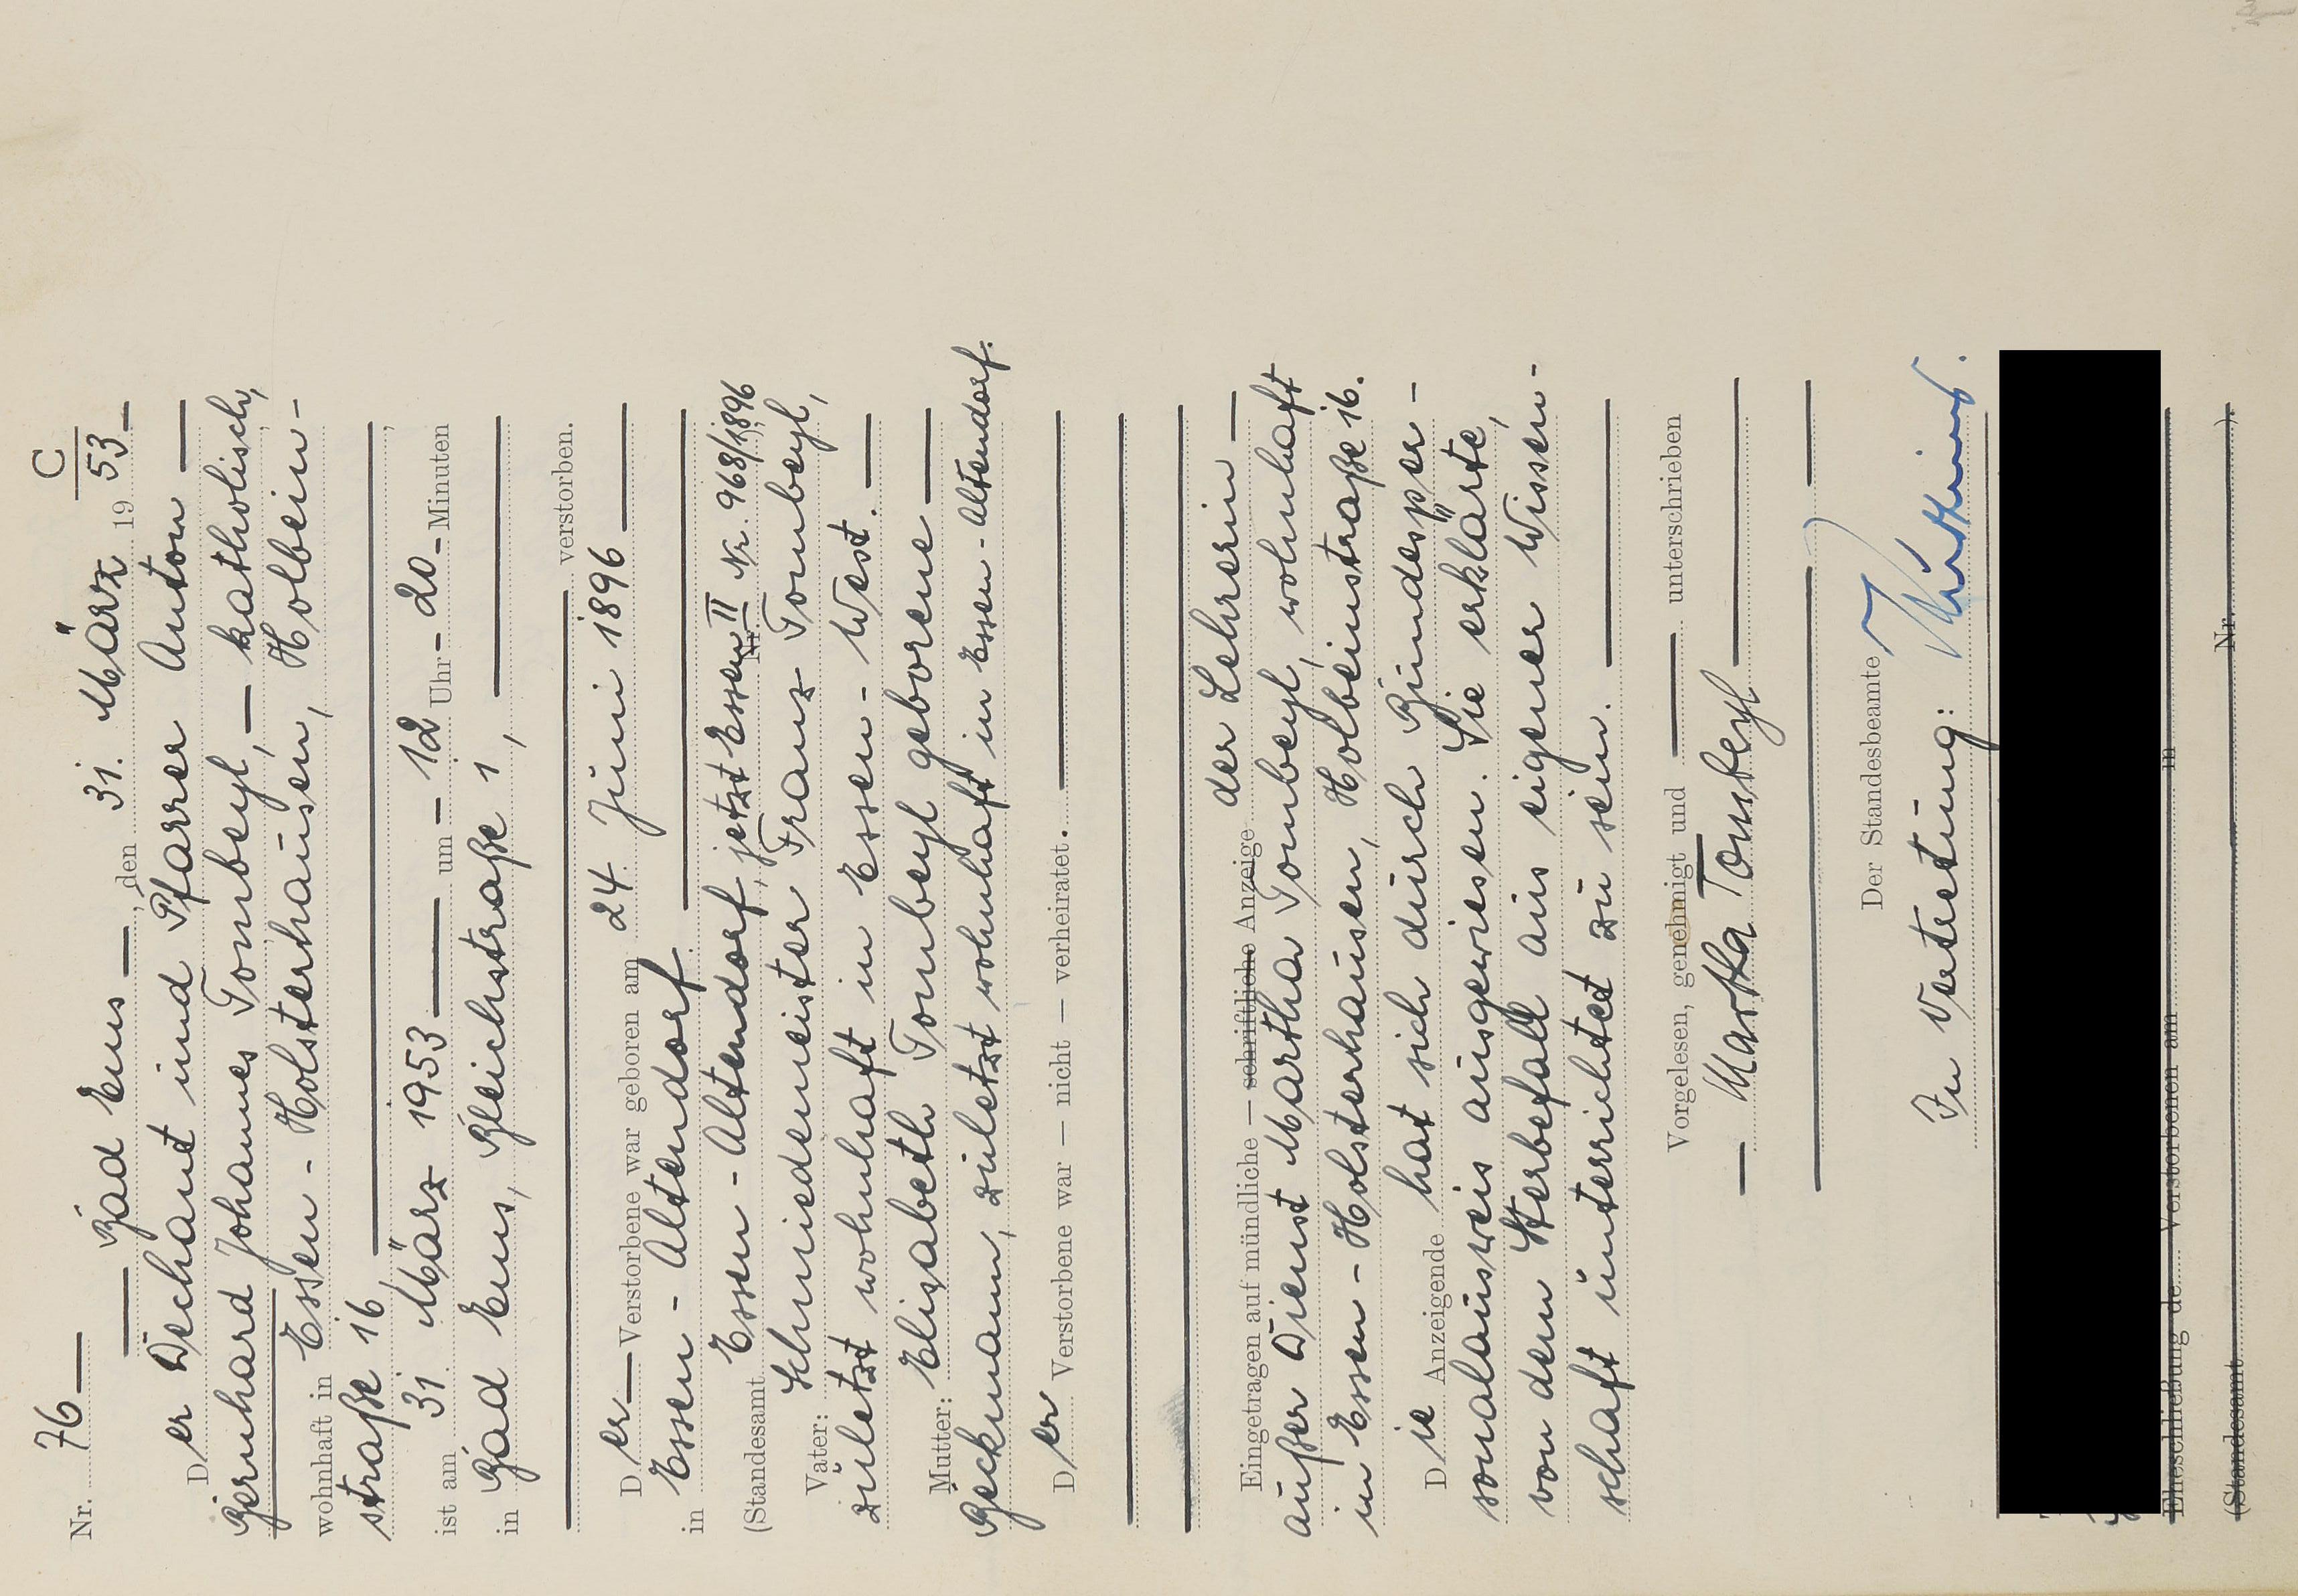 C
Nr. 76
Bad Ems, den 31. März 1953
Der Dechant und Pfarrer Anton
Gernhard Johannes Tombeyl, — katholisch,
wohnhaft in Essen - Holsterhausen, Holbein-
straße 16,
ist am 31. März 1953 um - 12 Uhr - 20 - Minuten
in Bad Ems, Gleichstraße 1,
verstorben.
Der Verstorbene war geboren am 24. Juni 1896
in Essen - Altendorf.
(Standesamt Essen - Altendorf, jetzt Essen II Nr. 968/1896
Vater: Schmiedemeister Franz Tombeyl,
zuletzt wohnhaft in Essen - West.
Mutter: Elisabeth Tombeyl geborene
Geckmann, zuletzt wohnhaft in Essen - Altendorf.
Der Verstorbene war — nicht — verheiratet.
Eingetragen auf mündliche — schriftliche Anzeige der Lehrerin
außer Dienst Martha Tombeyl, wohnhaft
in Essen - Holsterhausen, Holbeinstraße 16.
Die Anzeigende hat sich durch Bundesper-
sonalausweis ausgewiesen. Sie erklärte,
von dem Sterbefall aus eigener Wissen-
schaft unterrichtet zu sein.
Vorgelesen, genehmigt und unterschrieben
Martha Tombeyl
Der Standesbeamte
In Vertretung:
Eheschließung de Verstorbenen am in
(Standesamt Nr. ).